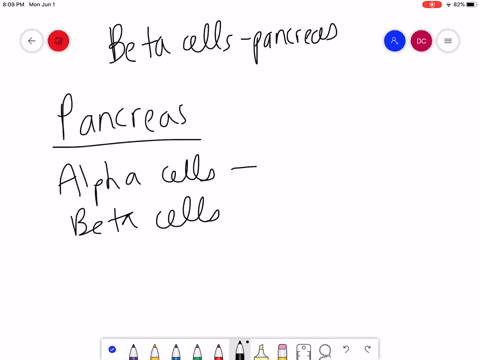 8:09 PM Mon Jun 1
82%
DC
Beta cells - pancreas
Pancreas
Alpha cells -
Beta cells